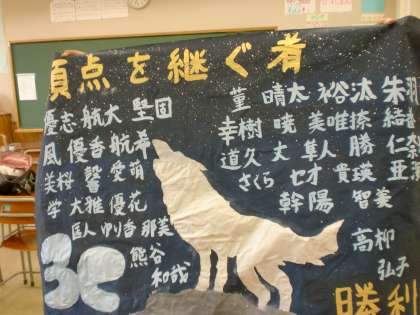 頂点を継ぐ者
優志 航大 堅固
風優香 航希
美桜 馨 愛萌
学 大雅 優花
匠人 ゆり香 那美
熊谷
和哉
菫 晴太 裕汰 朱羽
幸樹 暁 美唯奈 結
道久 丈 隼人 勝仁
さくら セオ 貴瑛 亜
幹陽 智美
高柳
弘子
3C
勝利